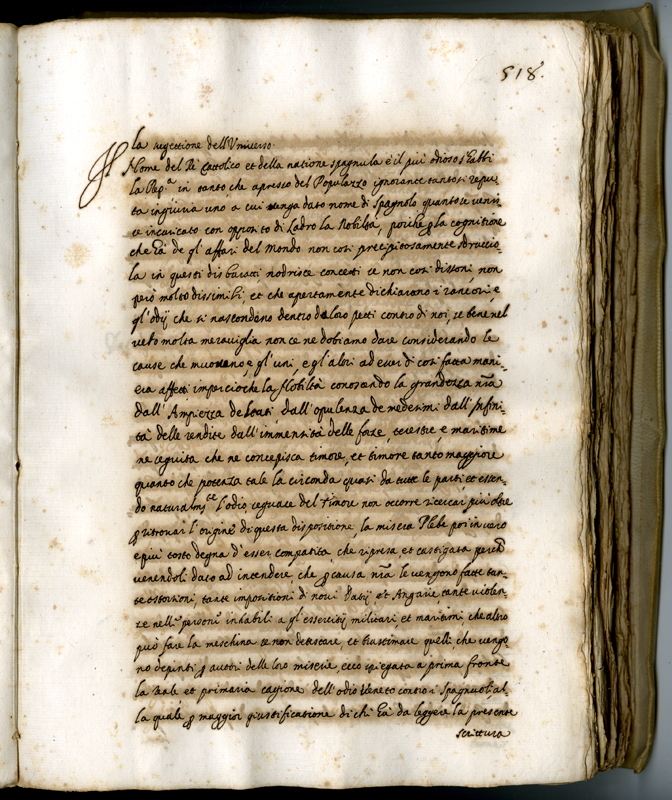 518.
la regettione dell'Vniuerso.
Il Nome del Rè Cattolico et della natione spagnula è il più odioso
la Rep.a in tanto che apresso del Populazzo ignorante tanto si repu-
ta ingiuria uno a cui uenga dato nome di Spagnolo quanto se uenis
se incaricato con opposito di Ladro la Nobiltà, poiche p la cognitione
che hà de gl'affari del Mondo non così precipitosamente sdruccio
la in questi disbaratti nodrisce concetti se non così distoni, non
però molto dissimili, et che apertamente dichiarano i rancori, e
gl'odij che si nascondano dentro de loro petti contro di noi, se bene nel
uero molta merauiglia non ce ne dobiamo dare considerando le
cause che muouano, e gl'uni, e gl'altri ad euer di così fatta mani-
era affetti imperciòche la Nobiltà conoscendo la grandezza nra
dall'Ampiezza de stati dall'opulenza de medesimi dall'Infini-
tà delle rendite dall'immensità delle forze, terestre, e maritime
ne ceguita che ne concepisca timore, et timore tanto maggiore
quanto che potenza tale la circonda quasi da tutte le parti et essen-
do naturalm.te l'odio ceguace del timore non occorre ricercar più oltre
p ritrouar l'origine di questa dispositione, la misera Plebe poi in uero
è più tosto degna d'esser compatita, che ripresa et castigata perche
uenendoli dato ad intendere, che p causa nra le uengono fatte tan-
te estorsioni, tante impositioni di noui Datij et Angarie, tante uiolen-
ze nell persone inhabili a gl'essercitij militari, et maritimi che altro
può fare la meschina se non detestare, et biasimare quelli che uengo-
no depinti p autori delle loro miserie, ecco spiegato a prima fronte
la reale et primaria cagione dell'odio Veneto contro i Spagnuoli al-
la quale p maggior giustificatione di chi hà da leggere la presente
scrittura